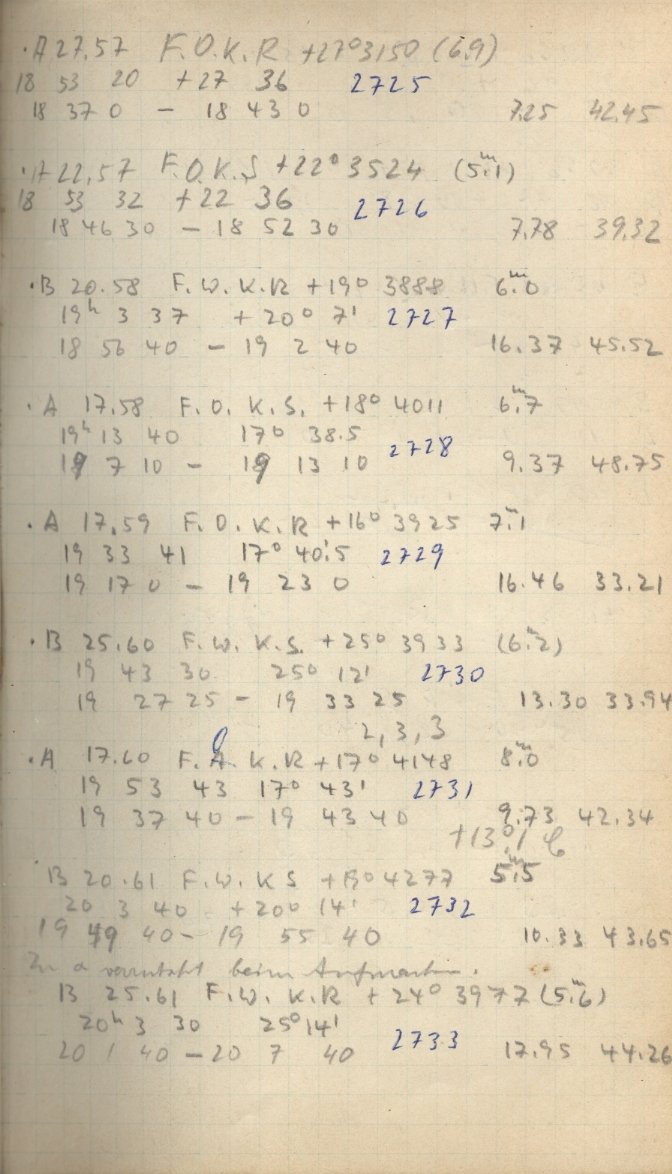 · A 27.57 F.O.K.R +27° 3150 (6.9)
18 53 20 +27 36 2725
18 37 0 – 18 43 0 7.25 42.45
· A 22.57 F.O.K.S +22° 3524 (5ᵐ.1)
18 53 32 +22 36 2726
18 46 30 – 18 52 30 7.78 39.32
· B 20.58 F.W.K.R +19° 3888 6ᵐ.0
19ʰ 3 37 +20° 7' 2727
18 56 40 – 19 2 40 16.37 45.52
· A 17.58 F.O.K.S. +18° 4011 6ᵐ.7
19ʰ 13 40 17° 38.5 2728
19 7 10 – 19 13 10 9.37 48.75
· A 17.59 F.O.K.R +16° 3925 7ᵐ.1
19 33 41 17° 40'.5 2729
19 17 0 – 19 23 0 16.46 33.21
· B 25.60 F.W.K.S. +25° 3933 (6ᵐ.2)
19 43 30 25° 12' 2730
19 27 25 – 19 33 25 13.30 33.94
2, 3, 3
· A 17.60 F.O.K.R +17° 4148 8ᵐ.0
19 53 43 17° 43' 2731
19 37 40 – 19 43 40 9.73 42.34
+13°.1 C
B 20.61 F.W.K S +19° 4277 5ᵐ.5
20 3 40 +20° 14' 2732
19 49 40 – 19 55 40 10.33 43.65
beim
B 25.61 F.W.K.R +24° 3977 (5ᵐ.6)
20ʰ 3 30 25° 14'
20 1 40 – 20 7 40 2733 17.95 44.26